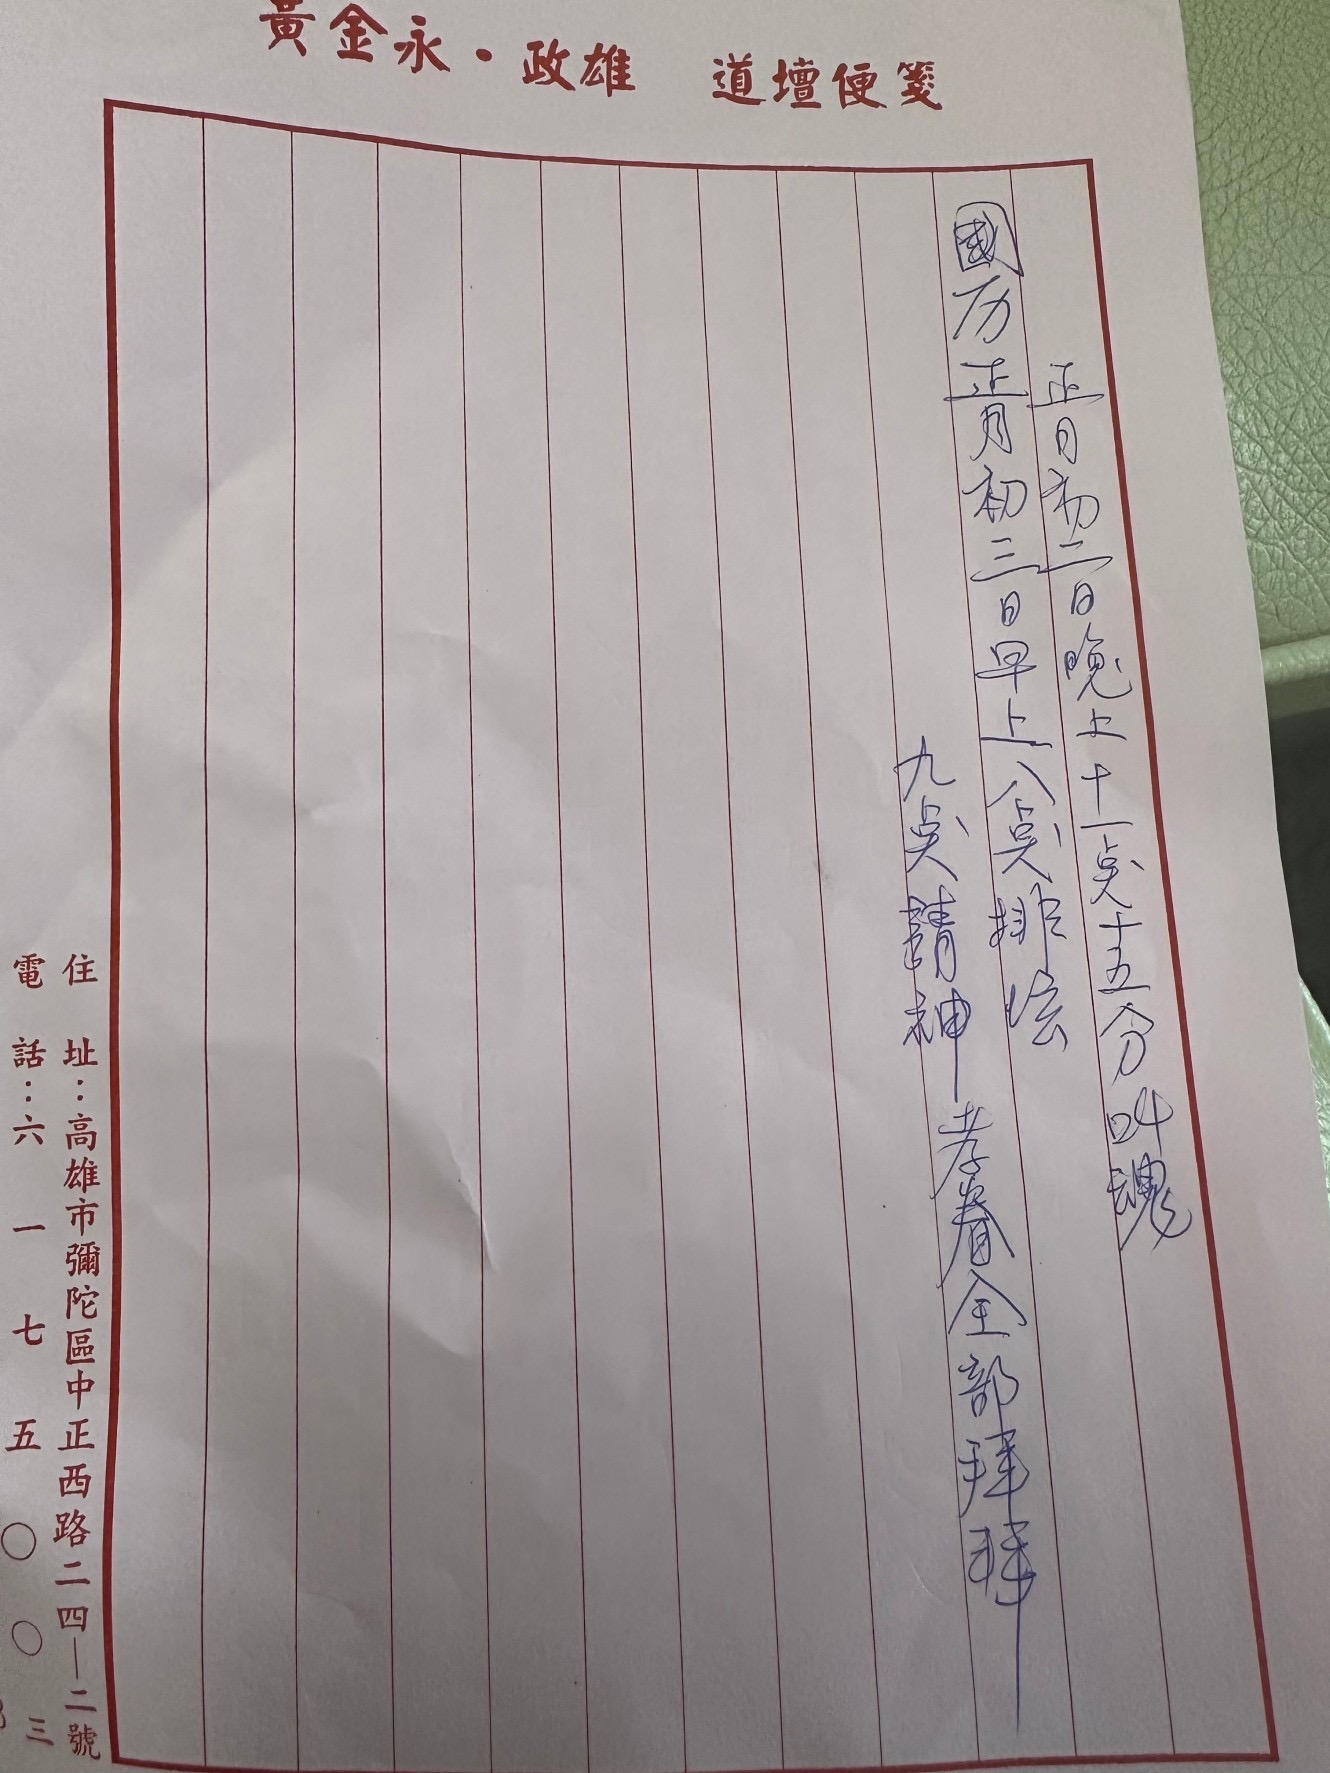 黃金永・政雄　道壇便箋
正日初二日晚上十一点十五分叫魂
國历正月初三日早上八点排坛
九点請神　孝眷全部拜拜
住址：高雄市彌陀區中正西路二四—二號
電話：六一七五〇〇三